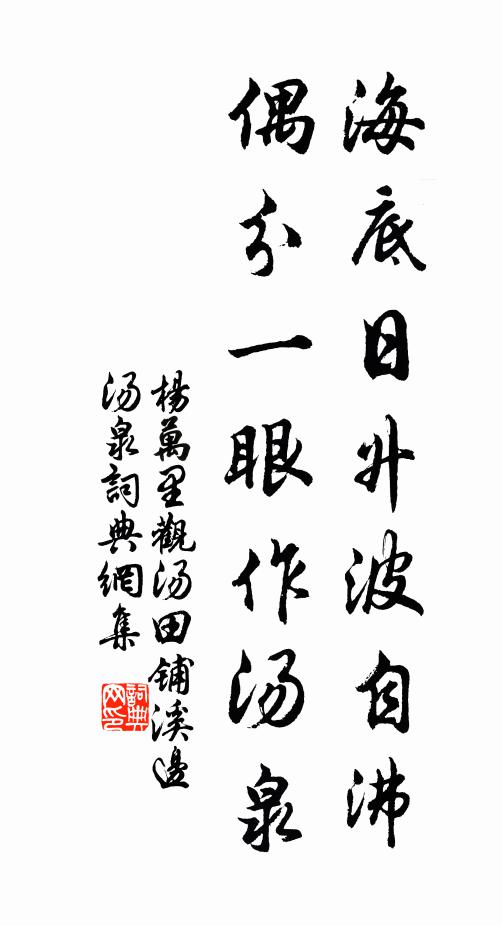 海底日升波自沸
偶分一眼作汤泉
杨萬里觀汤田铺溪邊
汤泉詞典網集
詞典
网印